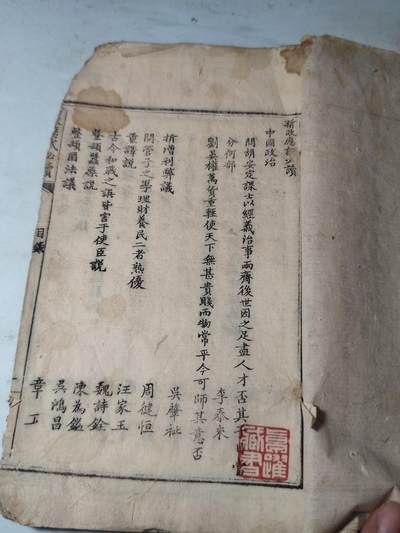 新政應試必讀
中國政治
問胡安定課士以經義治事兩齋後世因之足盡人才否其
分何部 李春來
劉晏權萬貨重輕使天下無甚貴賤而物常平今可師其意否
吳聲祉
折增刊弊議
問管子之學理財養民二者熟優 周健恒
重譯說 汪家玉
古今和戰之誤皆害于使臣說 魏詩銓
整頓蠶桑說 陳為鎰
整頓圜法議 吳鴻昌
目錄
章工
藏書